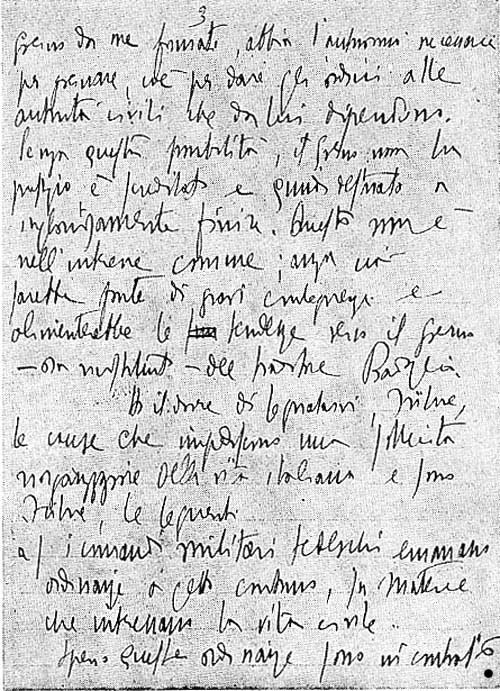 3
Governo da me formato, abbia l'autonomia necessaria
per governare, cioè per dare gli ordini alle
autorità civili che da lui dipendono.
Senza questa possibilità, il Governo non ha
prestigio è screditato e quindi destinato a
ingloriosamente finire. Questo non è
nell'interesse comune; anzi ciò
sarebbe fonte di gravi conseguenze e
alimenterebbe le tendenze verso il Governo
– ora – del Badoglio.
Ho il dovere di segnalarvi, Führer,
le cause che impediscono una sollecita
riorganizzazione della vita italiana e sono
Führer, le seguenti
a) i comandi militari tedeschi emanano
ordinanze a getto continuo, in materie
che interessano la vita civile.
Spesso queste ordinanze sono in contrasto